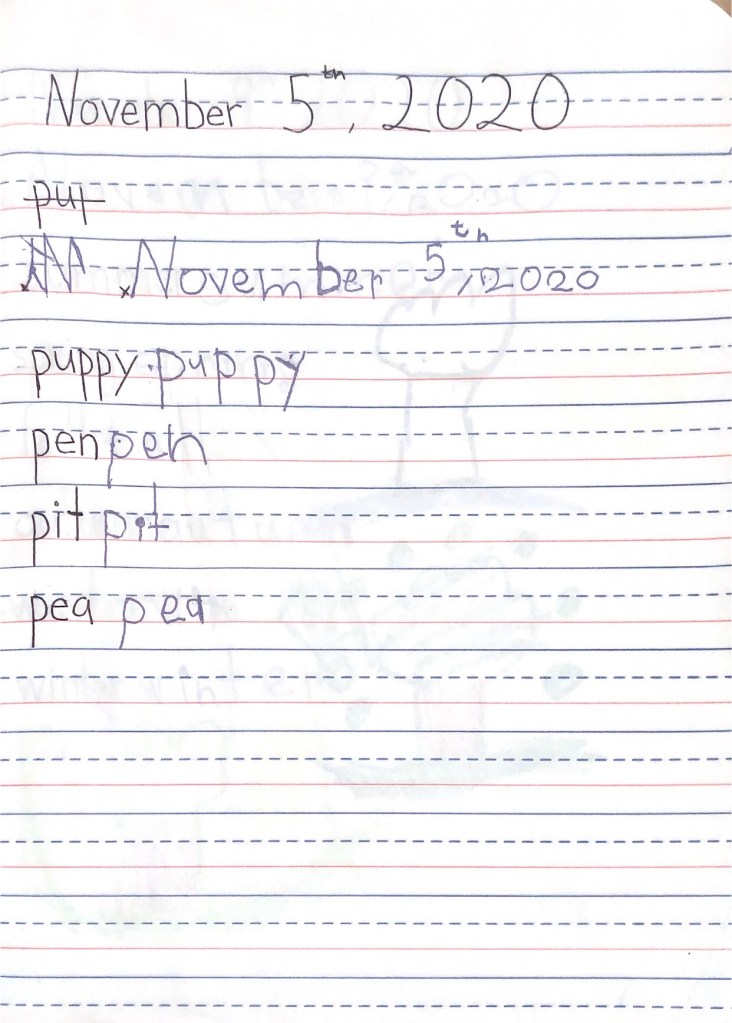 November 5th, 2020
November 5th, 2020
puppy puppy
pen pen
pit pit
pea pea